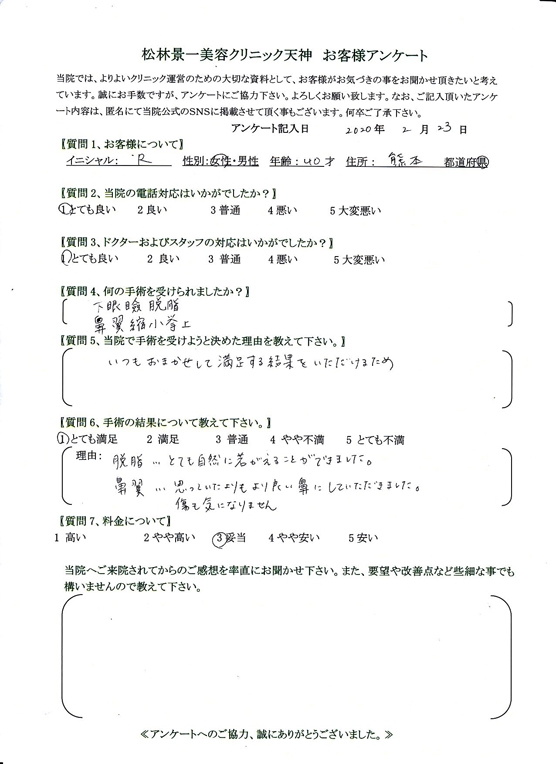 松林景一美容クリニック天神　お客様アンケート
当院では、よりよいクリニック運営のための大切な資料として、お客様がお気づきの事をお聞かせ頂きたいと考え
ています。誠にお手数ですが、アンケートにご協力下さい。よろしくお願い致します。なお、ご記入頂いたアンケ
ート内容は、匿名にて当院公式のSNSに掲載させて頂く事もございます。何卒ご了承下さい。
アンケート記入日　2020年　2　月　23　日
【質問1、お客様について】
イニシャル：　R　性別：女性・男性　年齢：40才　住所：　熊本　都道府県
【質問2、当院の電話対応はいかがでしたか？】
1とても良い　2 良い　3 普通　4 悪い　5 大変悪い
【質問3、ドクターおよびスタッフの対応はいかがでしたか？】
1とても良い　2 良い　3 普通　4 悪い　5 大変悪い
【質問4、何の手術を受けられましたか？】
下眼瞼脱脂
鼻翼縮小挙上
【質問5、当院で手術を受けようと決めた理由を教えて下さい。】
いつもおまかせして満足する結果をいただけるため
【質問6、手術の結果について教えて下さい。】
1とても満足　2 満足　3 普通　4 やや不満　5 とても不満
理由：
脱脂…とても自然に若がえることができました。
鼻翼…思っていたよりもより良い鼻にしていただきました。
傷も気になりません
【質問7、料金について】
1 高い　2 やや高い　3妥当　4 やや安い　5 安い
当院へご来院されてからのご感想を率直にお聞かせ下さい。また、要望や改善点など些細な事でも
構いませんので教えて下さい。
≪アンケートへのご協力、誠にありがとうございました。≫